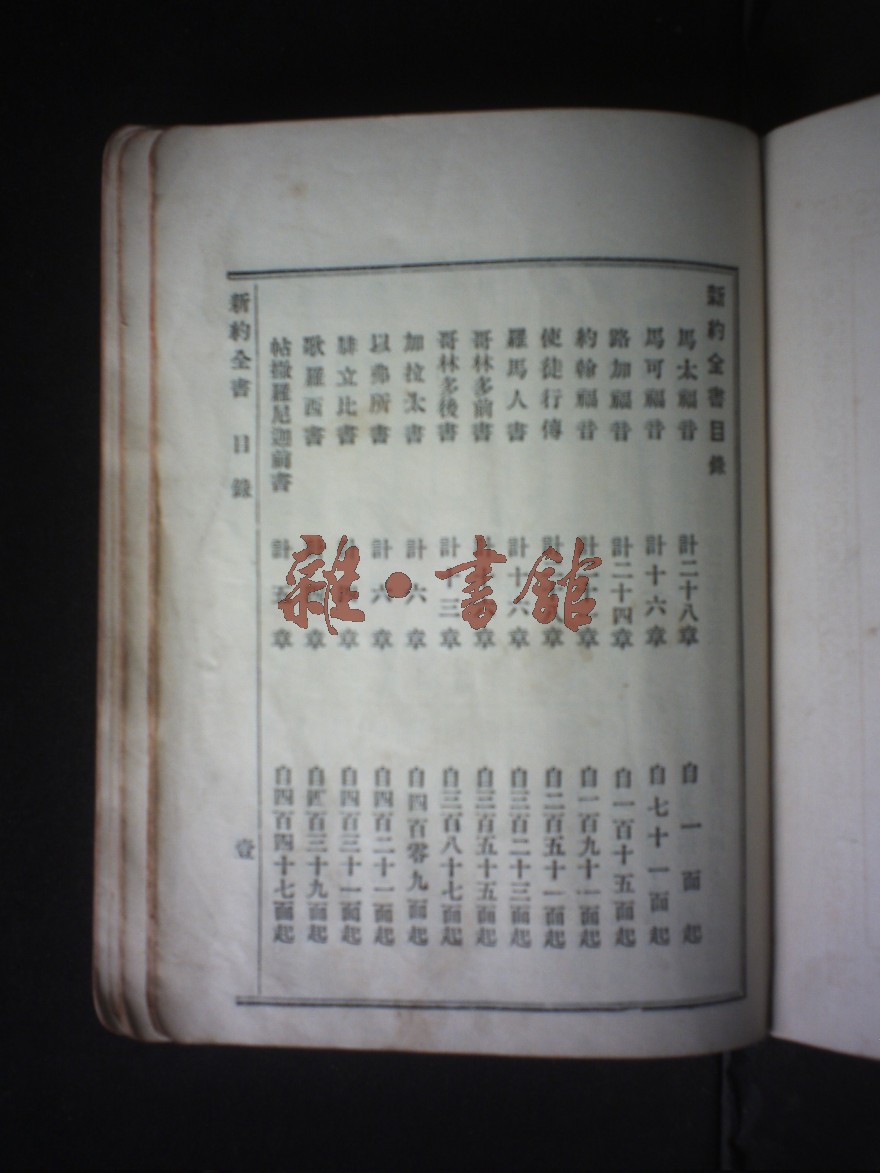 新約全書目錄
馬太福音 計二十八章 自一面起
馬可福音 計十六章 自七十一面起
路加福音 計二十四章 自一百十五面起
約翰福音 計二十一章 自一百九十一面起
使徒行傳 計二十八章 自二百五十一面起
羅馬人書 計十六章 自三百二十三面起
哥林多前書 計十六章 自三百五十五面起
哥林多後書 計十三章 自三百八十七面起
加拉太書 計六章 自四百零九面起
以弗所書 計六章 自四百二十一面起
腓立比書 計四章 自四百三十一面起
歌羅西書 計四章 自四百三十九面起
帖撒羅尼迦前書 計五章 自四百四十七面起
新約全書 目錄 壹
雜·書館